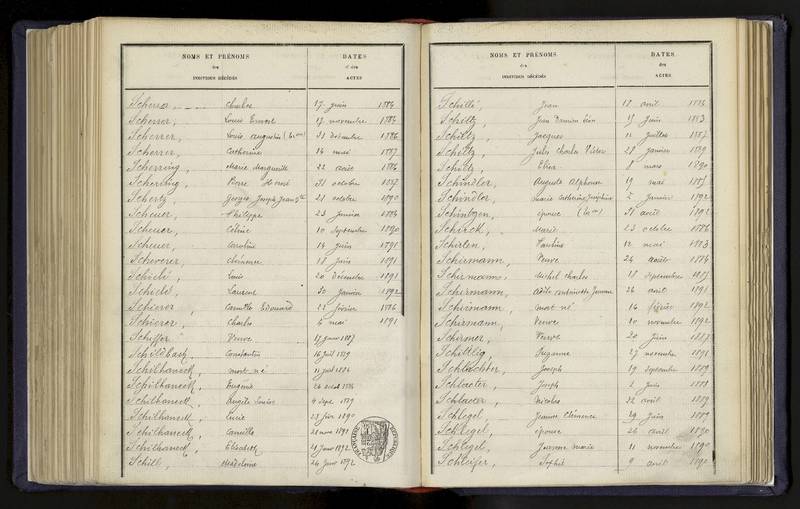 NOMS ET PRÉNOMS
des
INDIVIDUS DÉCÉDÉS
DATES
des
ACTES
Scherrer, Charles 17 juin 1884
Scherrer, Louis Ernest 17 novembre 1884
Scherrer, Louis Augustin 31 décembre 1886
Scherrer, Catherine 14 mai 1887
Scherring, Marie Marguerite 22 août 1886
Scherring, Pierre 31 octobre 1887
Schertz, 21 octobre 1890
Scheuer, Philippe 23 janvier 1884
Scheuer, Céline 10 septembre 1890
Scheuer, Caroline 14 juin 1891
Scheverer, Clémence 18 juin 1891
Schiclé, Louis 20 décembre 1891
Schiclé, Laurent 30 janvier 1892
Schierer, Camille Edouard 22 février 1886
Schierer, Charles 6 mai 1891
Schiffer Veuve 17 janv 1887
Schildbach, Constantin 16 juil 1889
Schilhaneck, mort né 11 juil 1884
Schilhaneck, Eugénie
Schilhaneck, 4 sept. 1889
Schilhaneck, Lucie 23 fév 1890
Schilhaneck, Camille 1891
Schilhaneck, Elisabeth 1892
Schill, Madeleine 24 janv 1892
NOMS ET PRÉNOMS
des
INDIVIDUS DÉCÉDÉS
DATES
des
ACTES
Schillé, Jean 18 avril 1886
Schiltz, Jean Damien Léon 19 juin 1883
Schiltz, Jacques 11 juillet 1887
Schiltz, Jules Charles Victor 28 janvier 1889
Schiltz, Elisa 8 mars 1890
Schindler, Auguste Alphonse 19 mai 1887
Schindler, Marie Catherine Joséphine 2 janvier 1892
Schintgen, épouse 31 août 1892
Schirck, Marie 23 octobre 1886
Schirlen, 12 mai 1883
Schirmann, Veuve 24 août 1884
Schirmann, Michel Charles 18 septembre 1887
Schirmann, 26 août 1891
Schirmann, mort né 14 février 1892
Schirmann, Veuve 20 novembre 1892
Schirmer, Veuve 20 juin 1887
Schittlig, Suzanne 27 novembre 1891
Schlachter, Joseph 19 septembre 1889
Schlacter, Joseph 2 juin 1888
Schlacter, Nicolas 22 août 1889
Schlegel, Jeanne Clémence 29 juin 1889
Schlegel, épouse 26 août 1890
Schlegel, Jeanne Marie 11 novembre 1890
Schleifer, Sophie 9 avril 1890